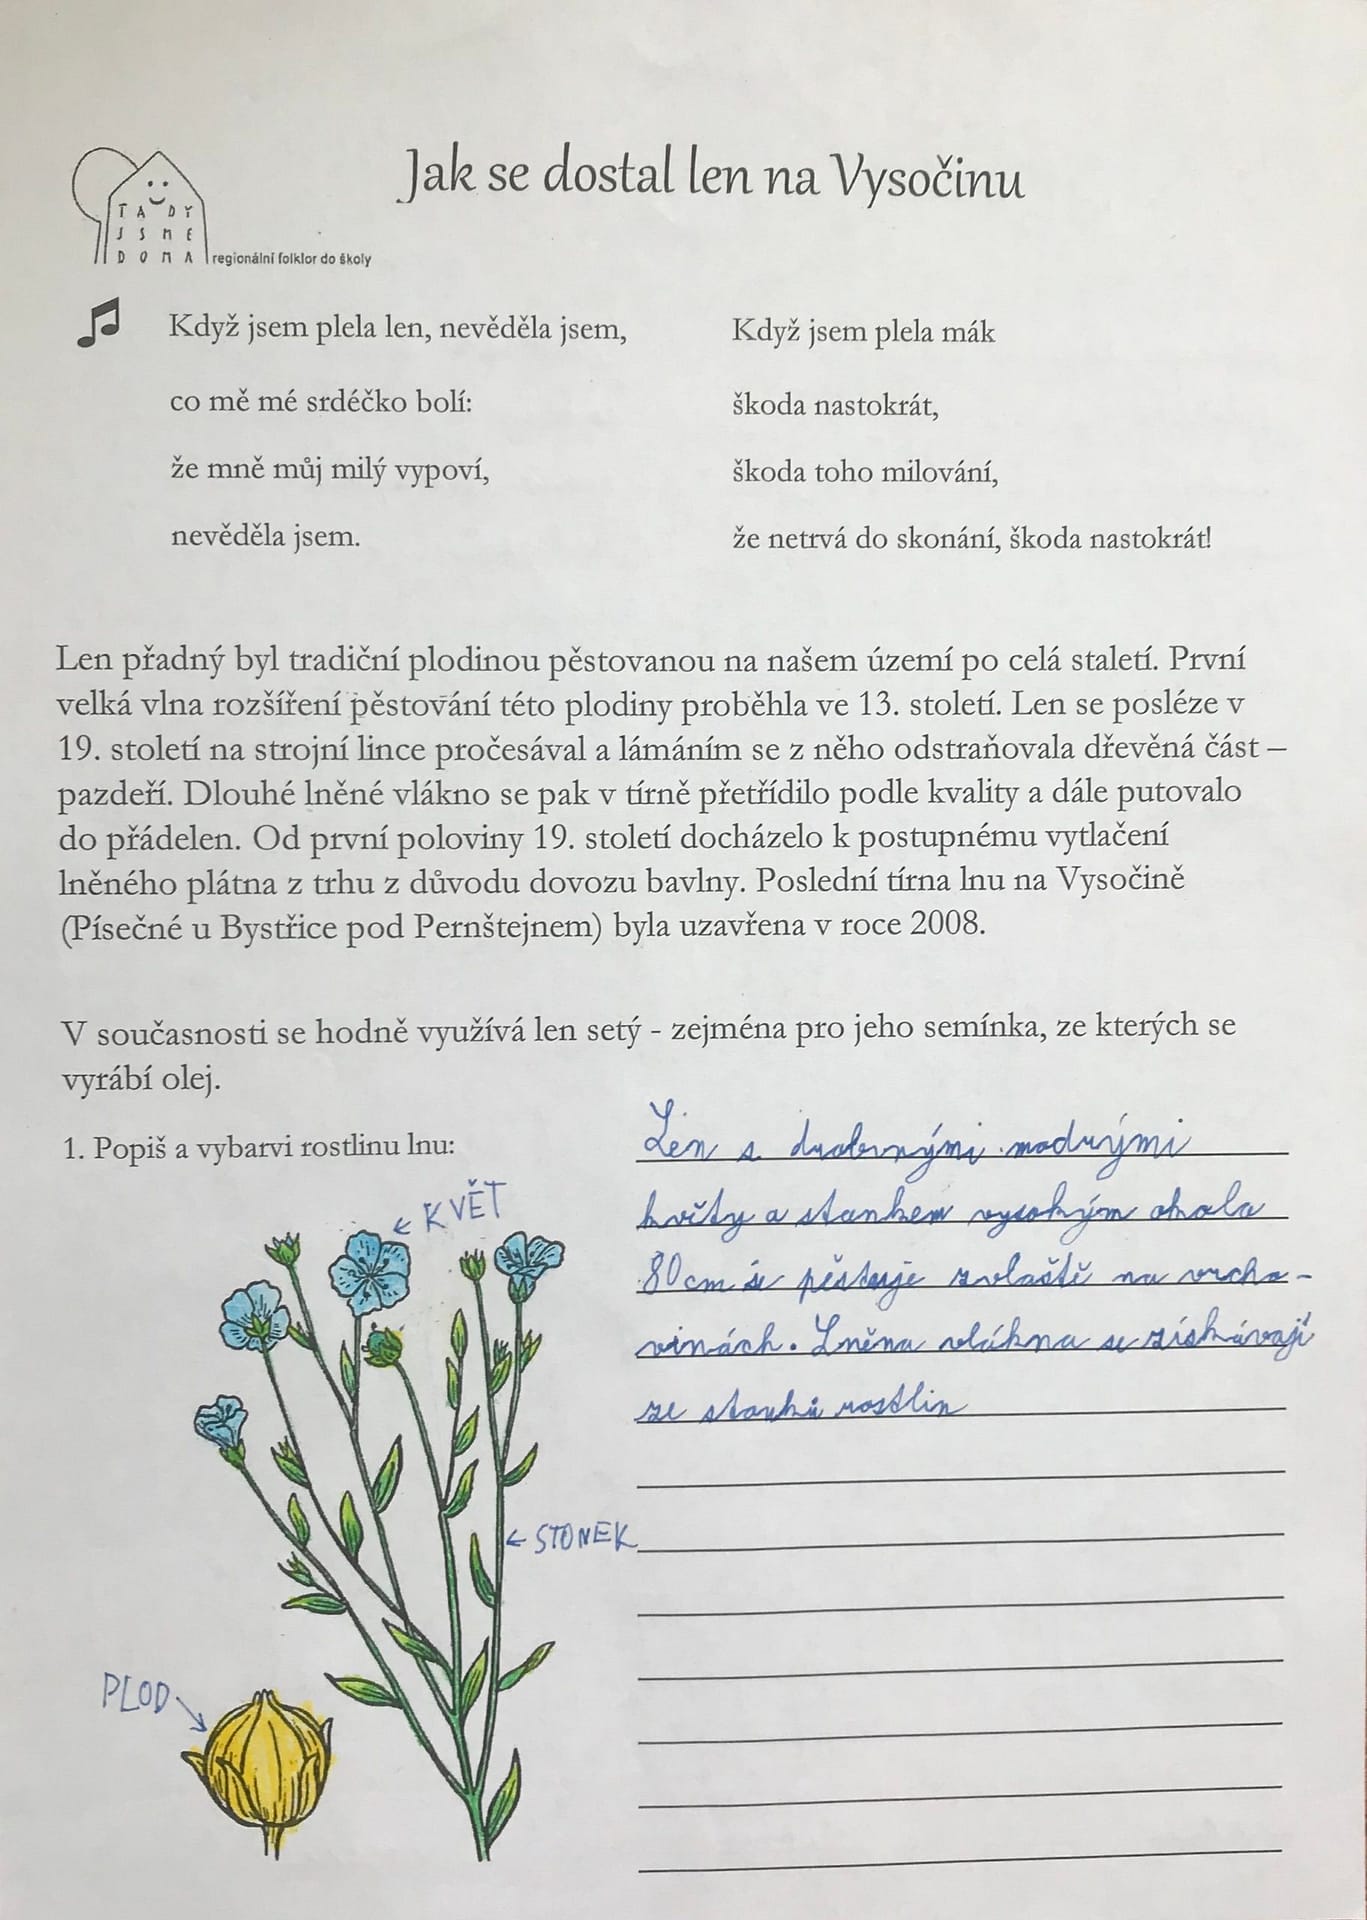 Jak se dostal len na Vysočinu
TADY
JSME
DOMA
regionální folklor do školy
Když jsem plela len, nevěděla jsem,
co mě mé srdéčko bolí:
že mně můj milý vypoví,
nevěděla jsem.
Když jsem plela mák
škoda nastokrát,
škoda toho milování,
že netrvá do skonání, škoda nastokrát!
Len přadný byl tradiční plodinou pěstovanou na našem území po celá staletí. První
velká vlna rozšíření pěstování této plodiny proběhla ve 13. století. Len se posléze v
19. století na strojní lince pročesával a lámáním se z něho odstraňovala dřevěná část –
pazdeří. Dlouhé lněné vlákno se pak v tírně přetřídilo podle kvality a dále putovalo
do přádelen. Od první poloviny 19. století docházelo k postupnému vytlačení
lněného plátna z trhu z důvodu dovozu bavlny. Poslední tírna lnu na Vysočině
(Písečné u Bystřice pod Pernštejnem) byla uzavřena v roce 2008.
V současnosti se hodně využívá len setý - zejména pro jeho semínka, ze kterých se
vyrábí olej.
1. Popiš a vybarvi rostlinu lnu:
Len s drobnými modrými
květy a stonkem vysokým okolo
80 cm se pěstuje zvláště na vrcho-
vinách. Lněna vlákna se získávají
ze stonků rostlin
KVĚT
STONEK
PLOD